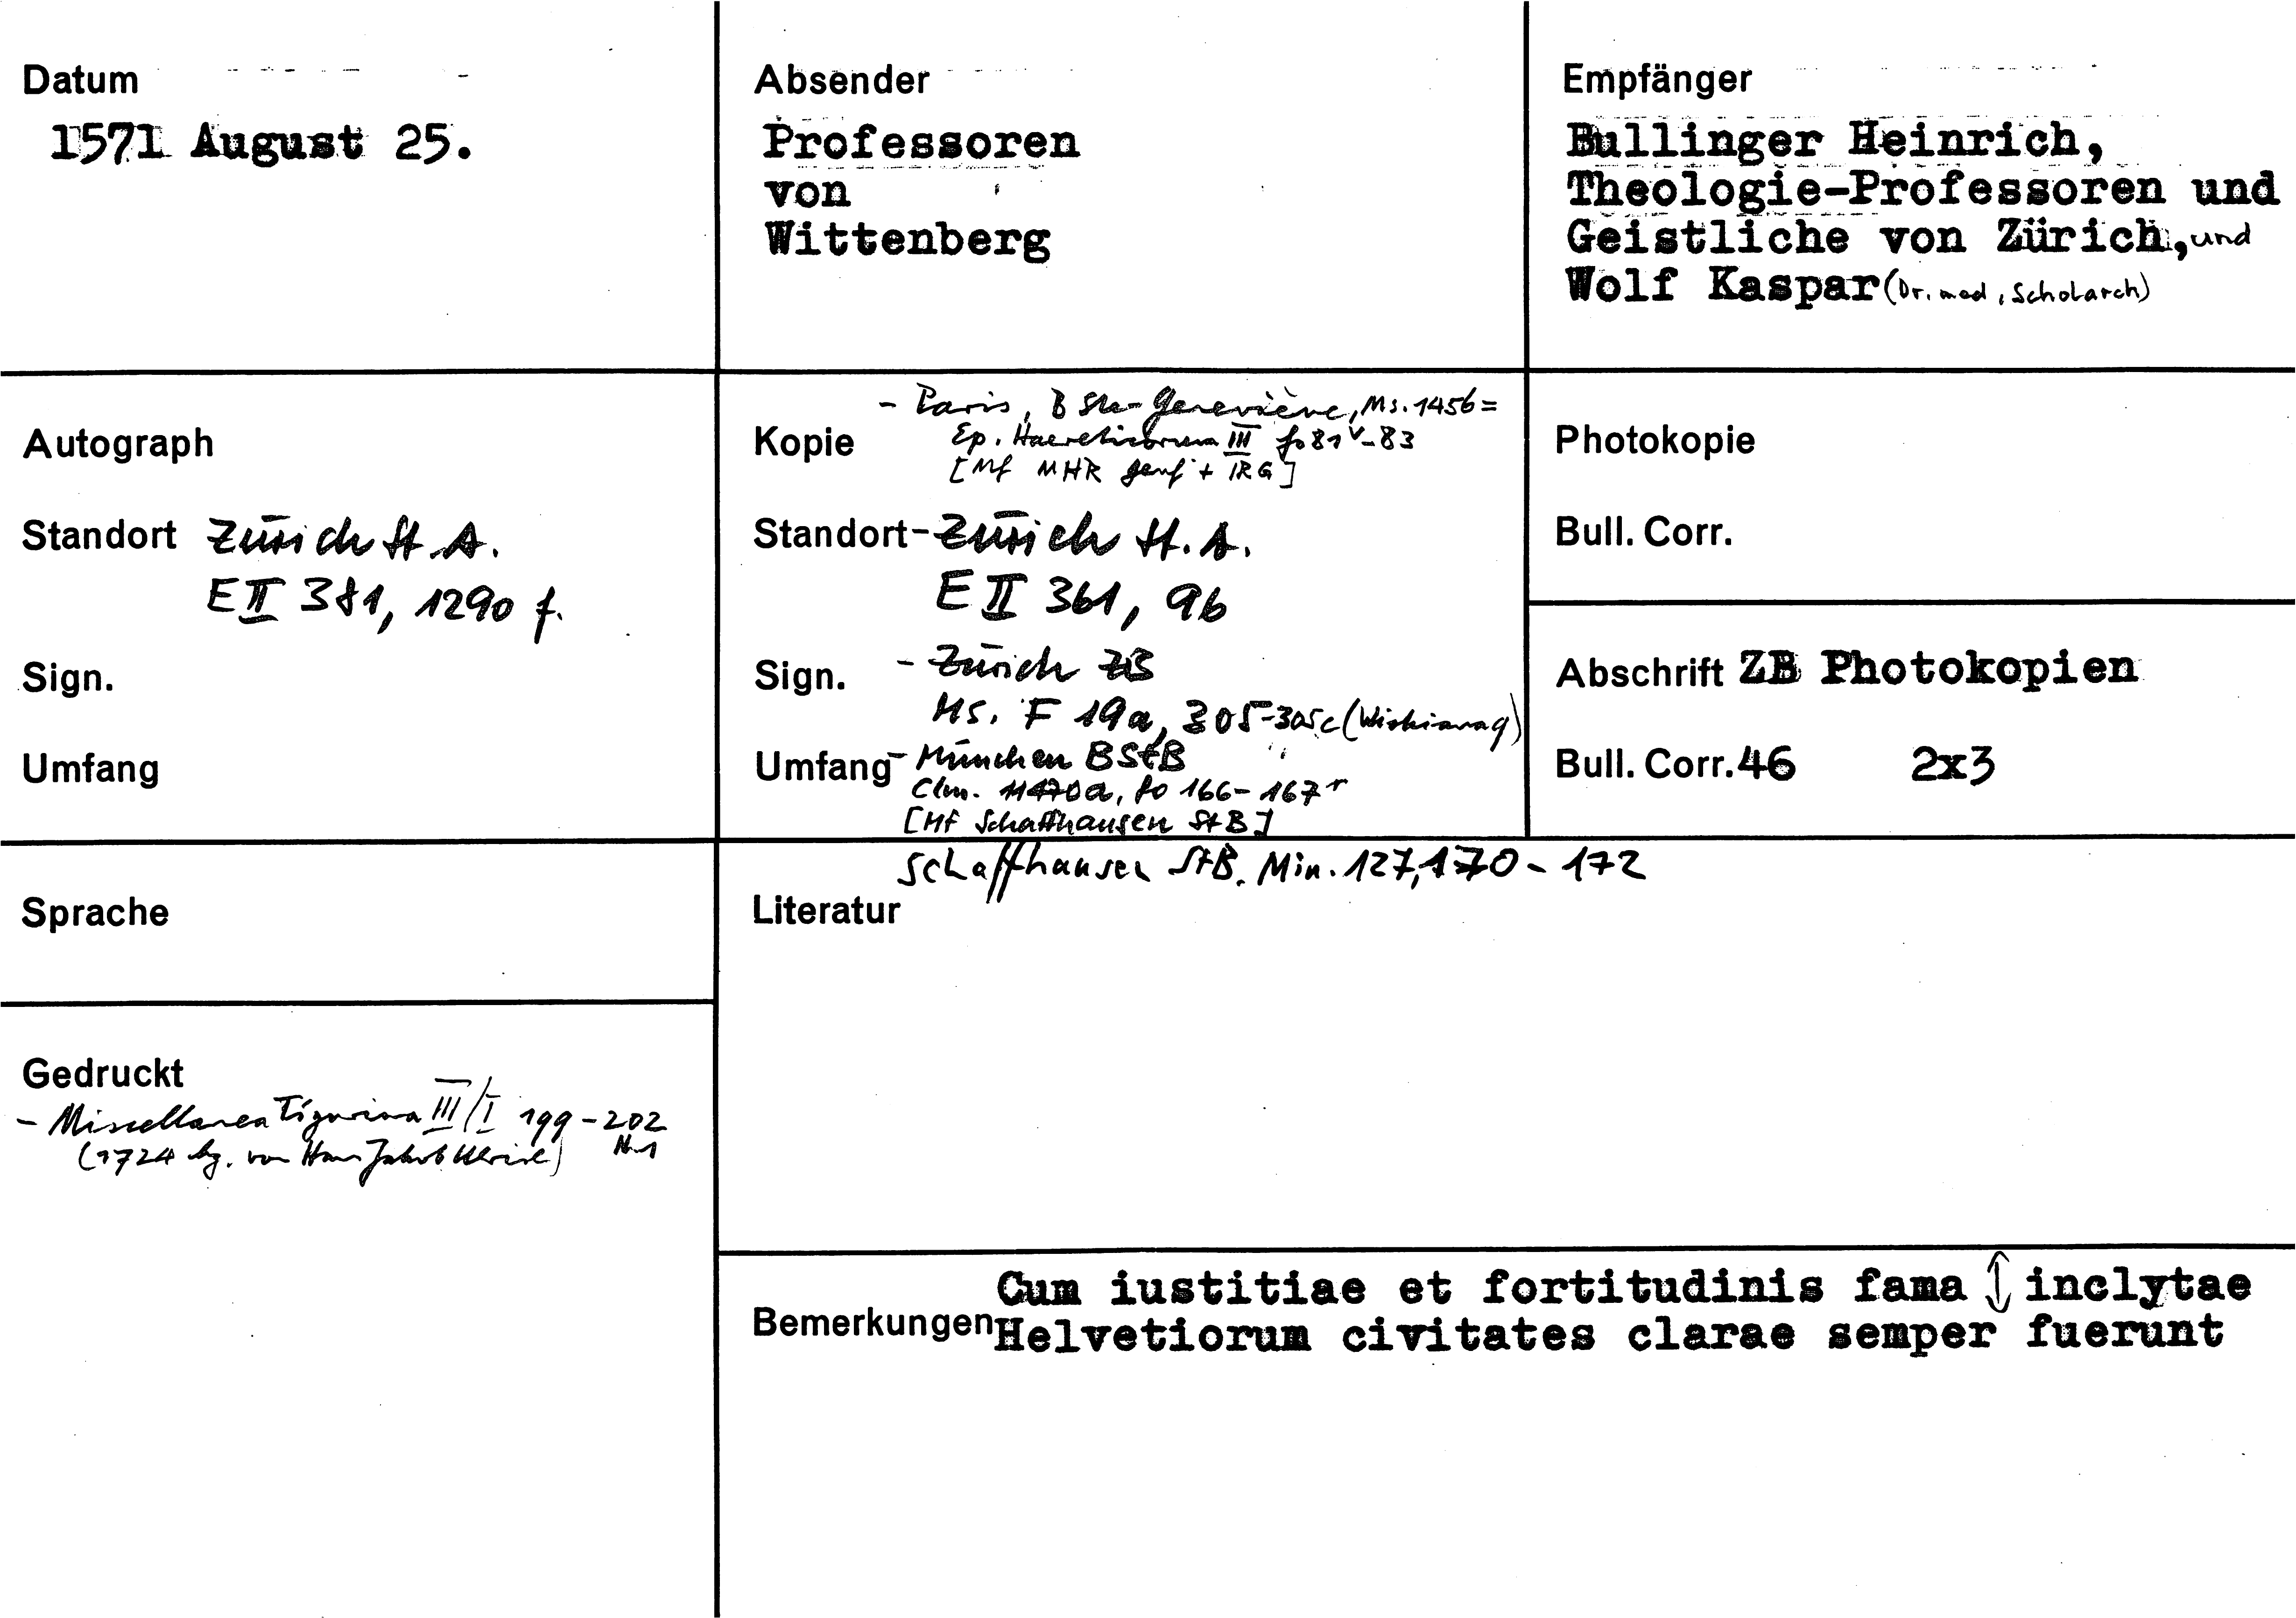 Datum
1571 August 25.
Absender
Professoren
von
Wittenberg
Empfänger
Bullinger Heinrich,
Theologie-Professoren und
Geistliche von Zürich, und
Wolf Kaspar (Dr. med, Scholarch)
Autograph
Standort Zürich St. A.
E II 381, 1290 f.
Sign.
Umfang
- Paris, B Ste-Geneviève, Ms. 1456 =
Kopie Ep. Haereticorum III fo 81v-83
[Mf MHR Genf + IRG]
Standort - Zürich St. A.
E II 361, 96
Sign. - Zürich ZB
Ms. F 19a, 305-305c (Wickiana 9)
Umfang - München BStB
Clm. 11470a, fo 166-167r
[Mf Schaffhausen StB]
Photokopie
Bull. Corr.
Abschrift ZB Photokopien
Bull. Corr. 46 2x3
Sprache
Schaffhausen StB. Min. 127, 170-172
Literatur
Gedruckt
- Miscellanea Tigurina III/I 199-202
(1724 hg. von Hans Jakob Ulrich) Nr. 1
Cum iustitiae et fortitudinis fama inclytae
Bemerkungen Helvetiorum civitates clarae semper fuerunt